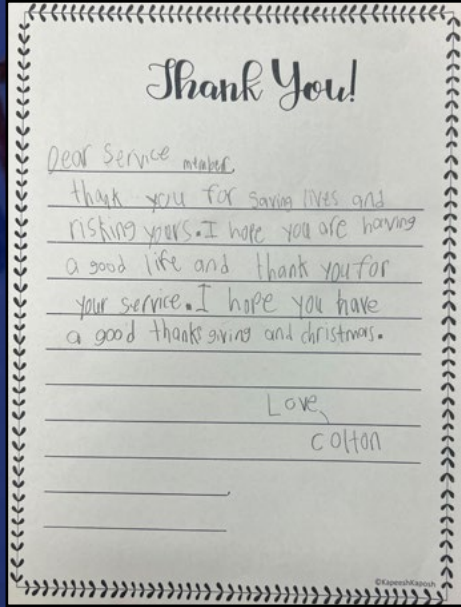 Thank You!
Dear Service member,
thank you for saving lives and
risking yours. I hope you are having
a good life and thank you for
your service. I hope you have
a good thanks giving and christmas.
Love,
colton
©KapeeshKaposh